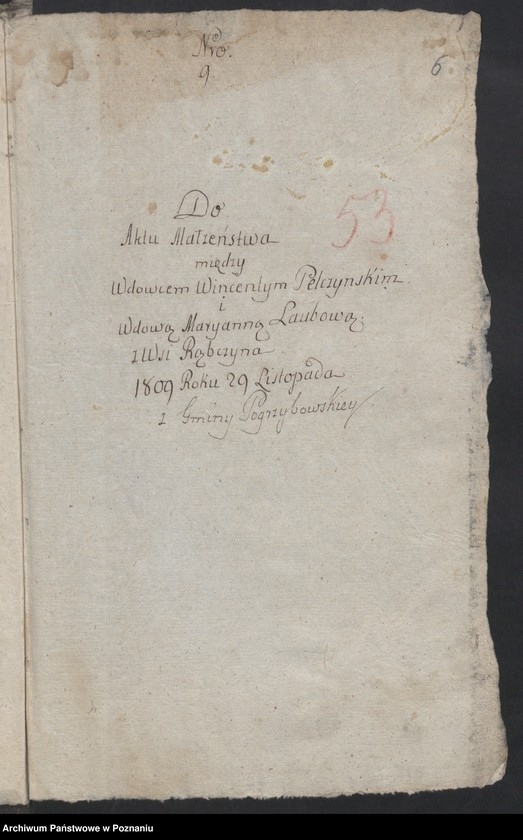 Nro.
9
6
53
Do
Aktu Małzeństwa
między
Wdowcem Wincentym Pelczynskim
i
Wdową Maryanną Laubową.
z Wsi Rąbczyna
1809 Roku 29 Listopada
z Gminy Pogrzybowskiey
Archiwum Państwowe w Poznaniu